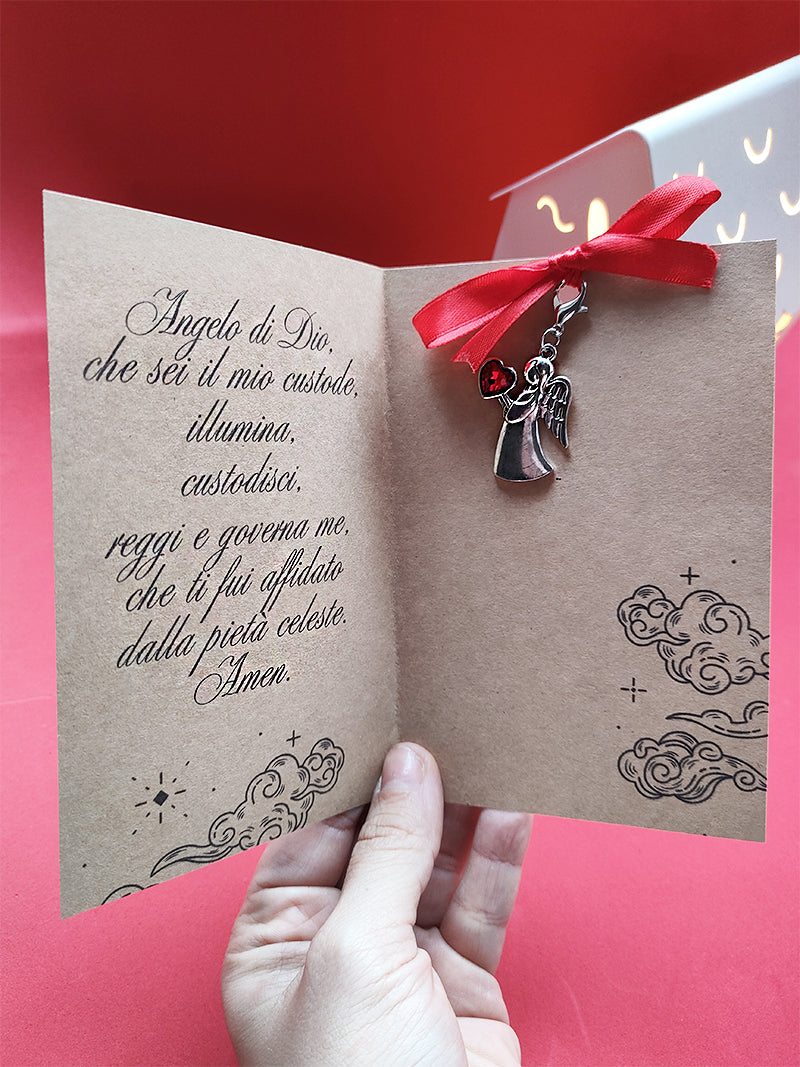 Angelo di Dio,
che sei il mio custode,
illumina,
custodisci,
reggi e governa me,
che ti fui affidato
dalla pietà celeste.
Amen.